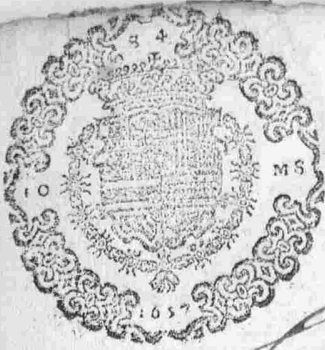 34
10 MS
1657